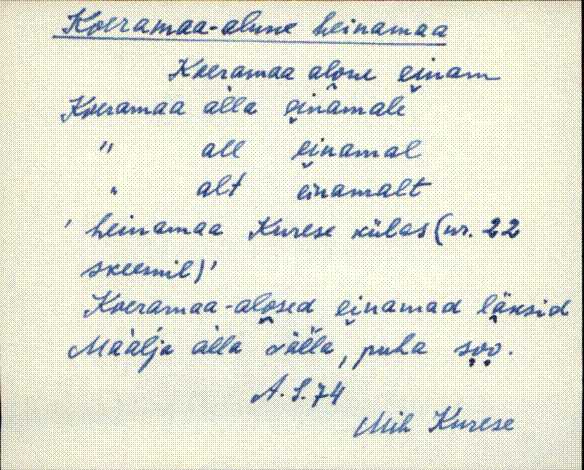 Koeramaa-alune heinamaa
Koeramaa alone einam
Koeramaa alla einamale
" all einamal
" alt einamalt
' heinamaa Kurese külas (nr. 22
skeemil)'
Koeramaa-alosed einamad läksid
Määlja alla välla, puha soo.
A. S. 74
Mih Kurese